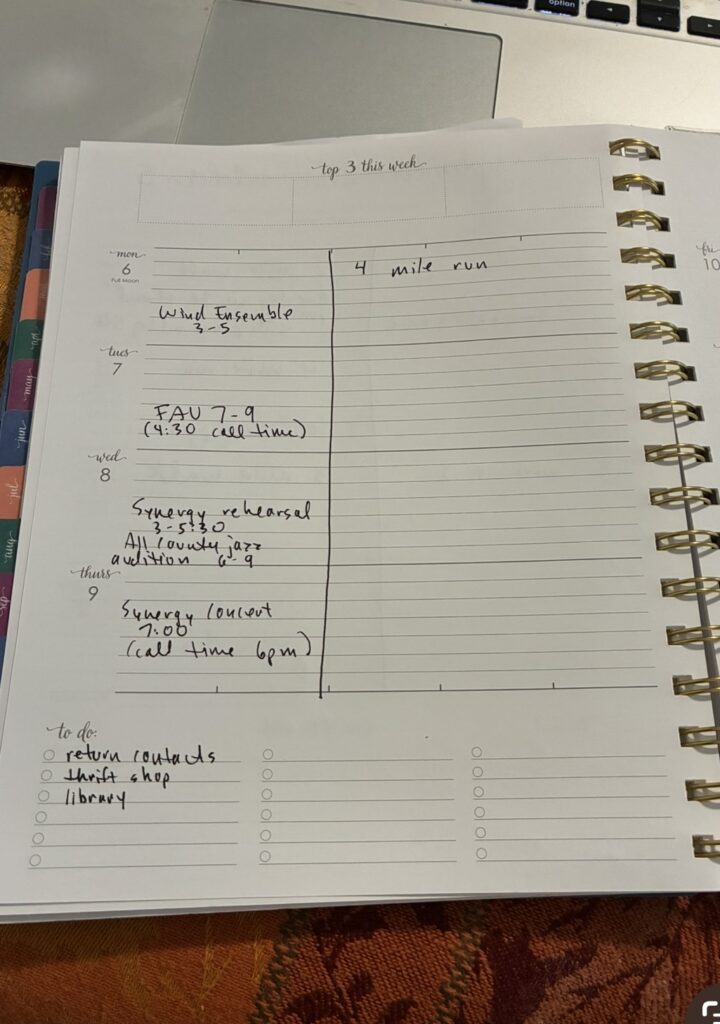 option
top 3 this week
mon
6
Full Moon
4 mile run
Wind Ensemble
3-5
tues
7
FAU 7-9
(4:30 call time)
wed
8
Synergy rehearsal
3-5:30
All County jazz
audition 6-9
thurs
9
Synergy Concert
7:00
(call time 6pm)
fri
10
to do:
return contacts
thrift shop
library
may
jun
jul
aug
sep